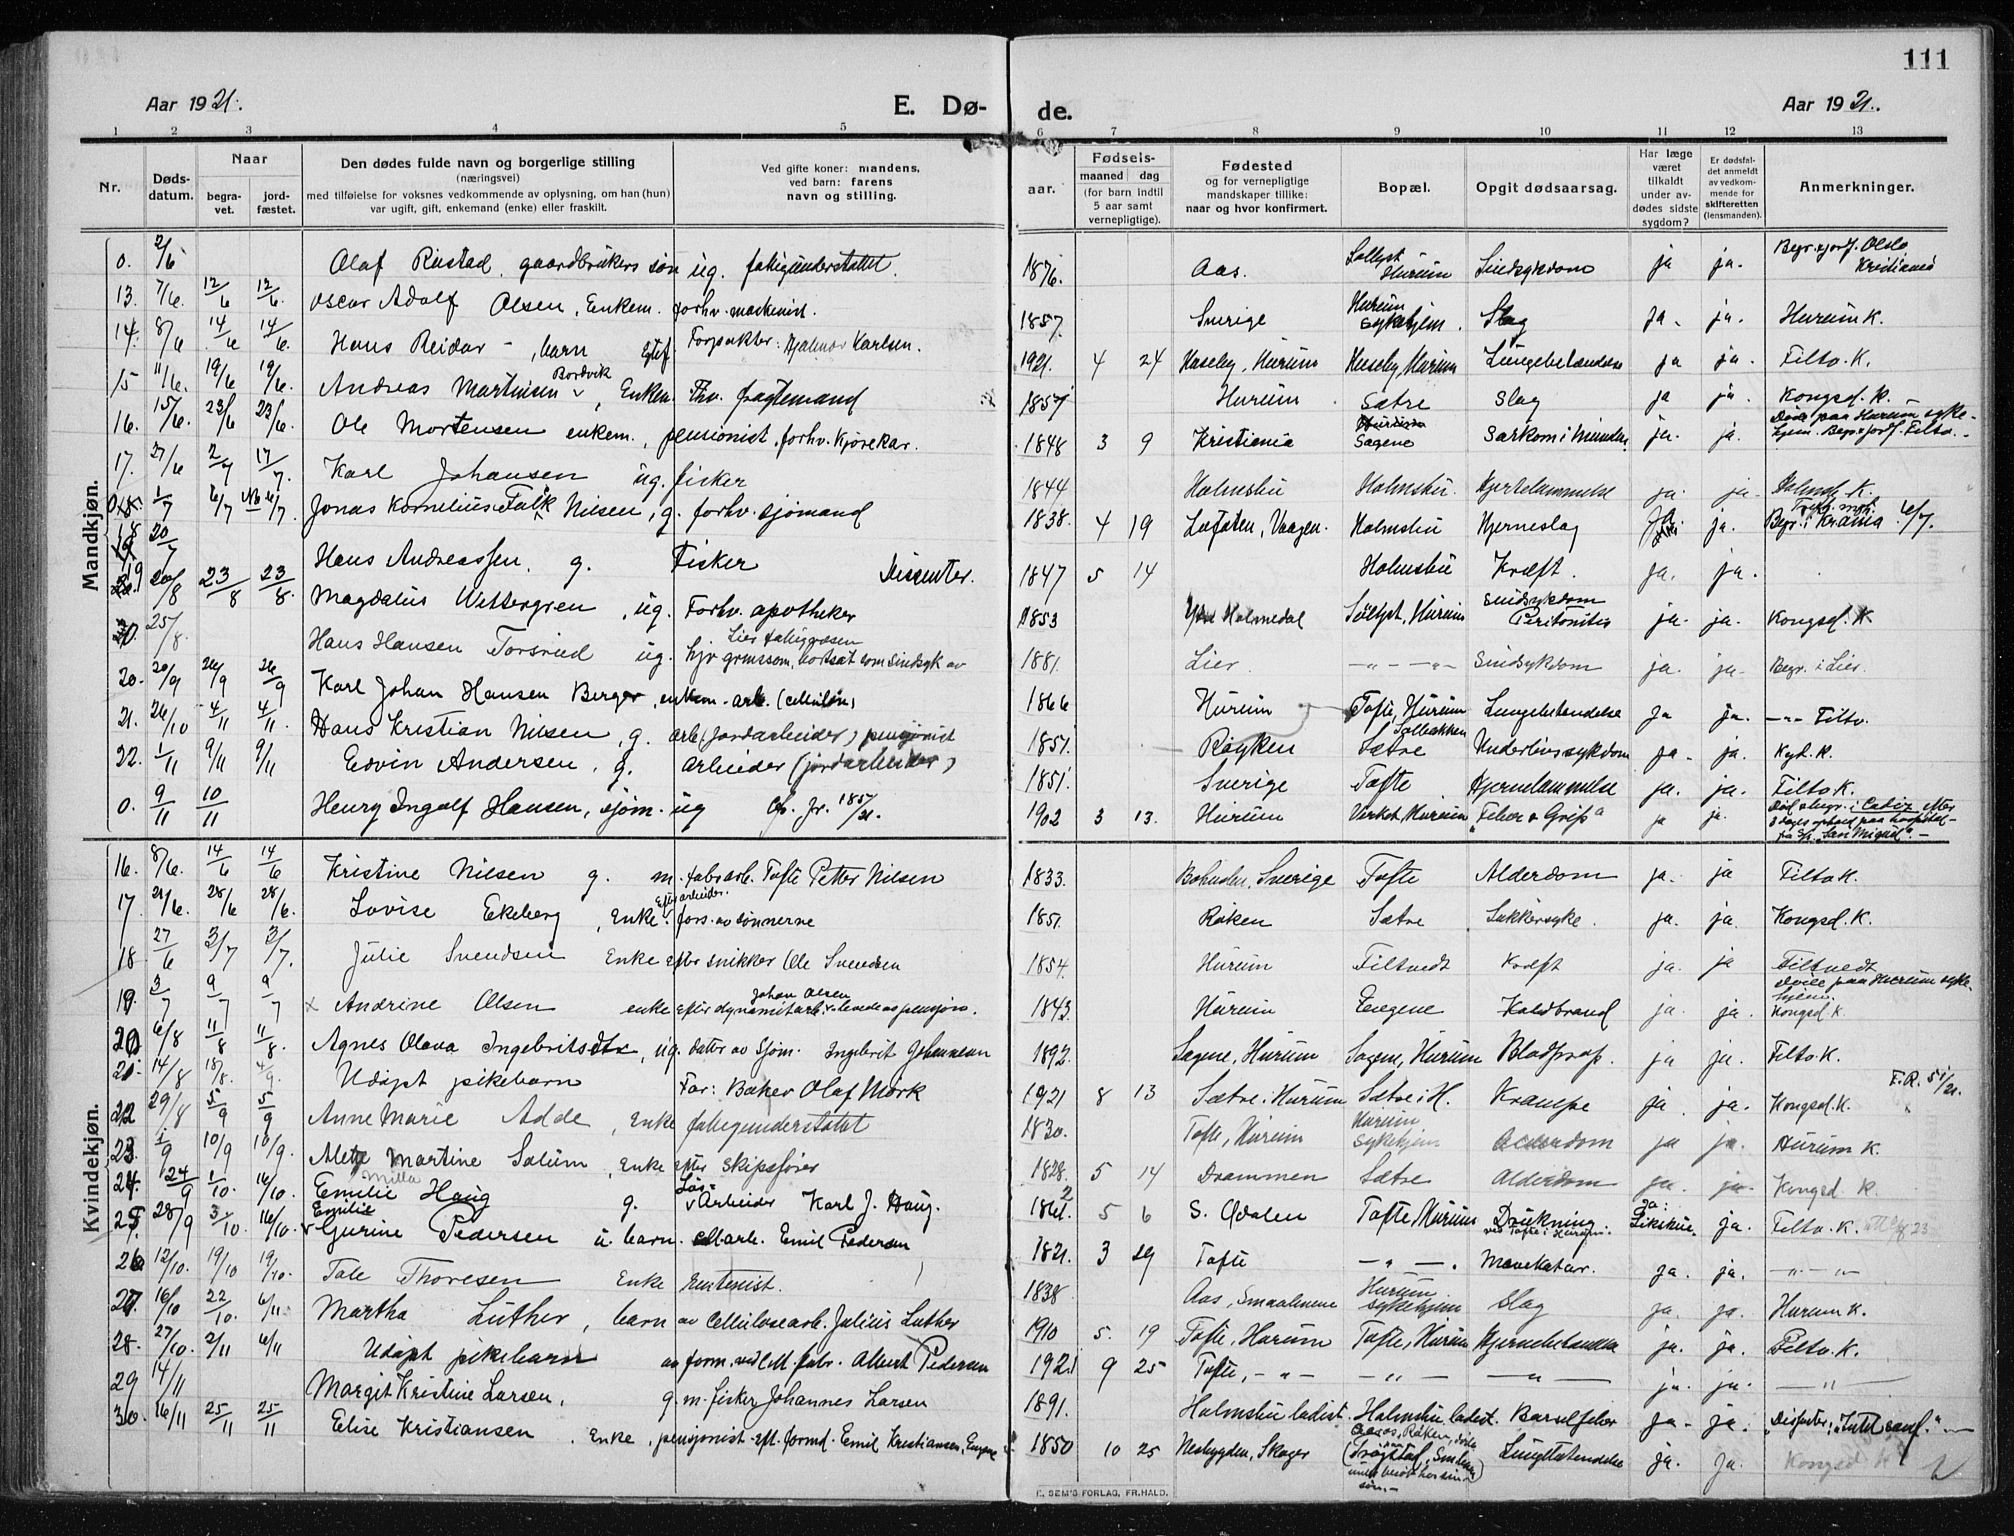 111
Aar 1921. E. Dø- de. Aar 1921.
1 2 3 4 5 6 7 8 9 10 11 12 13
Nr. Dødsdatum. Naar begravet. jordfæstet. Den dødes fulde navn og borgerlige stilling (næringsvei) med tilføielse for voksnes vedkommende av oplysning, om han (hun) var ugift, gift, enkemand (enke) eller fraskilt. Ved gifte koner: mandens, ved barn: farens navn og stilling. aar. Fødsels- maaned dag (for barn indtil 5 aar samt vernepligtige). Fødested og for vernepligtige mandskaper tillike: naar og hvor konfirmert. Bopæl. Opgit dødsaarsag. Har læge været tilkaldt under avdødes sidste sygdom? Er dødsfaldet anmeldt av vedkommende for skifteretten (lensmanden). Anmerkninger.
Mandkjøn.
0. 2/6 Olaf Rustad, gaardbrukers søn ug. fattigunderstøttet. 1876. Aas. Sollyst Hurum Sindsykdom ja ja. Begr. & jordf. Oslo Kristiania
13. 7/6. 12/6 12/6. Oscar Adolf Olsen, Enkem. forhv. maskinist. 1857. Sverige Hurum sykehjem. Slag Ja. ja. Hurum K.
14. 8/6 14/6 14/6. Hans Reidar -, barn Forpakter: Hjalmar Karlsen. 1921. 4 24 Haseby, Hurum Huseby, Hurum Lungebetændelse ja ja. Filtv. K.
15 11/6. 19/6 19/6. Andreas Martinsen Bordvik, Enkem. Fhv. fragtemand 1857 Hurum. Sætre Slag ja ja. Kongsd. K.
16. 15/6. 23/6 23/6. Ole Mortensen enkem., pensionist, forhv. kjørekar. 1848 3 9 Kristiania Sagene Sarkom i Munden ja. ja. Død paa Hurum sykehjem. Begr. & jordf. Filtv.
17. 27/6 2/7 17/7. Karl Johansen ug. fisker 1844 Holmsbu Holmsbu. Hjertelammelse ja. ja. Holmsb. K.
1/7 6/7 6/7. Jonas Kornelius Falk Nilsen, g. forhv. sjømand 1838. 4 19 Lofoten, Vaagen. Holmsbu Hjerneslag ja. Begr. i Krania 6/7.
18 20/7 Hans Andreassen, g. Fisker Dissenter. 1847 5 14 Holmsbu Kræft. ja. ja.
19 20/8 23/8 23/8. Magdalus Wettergren, ug. Forhv. apotheker 1853 Holmedal Sollyst, Hurum Sindsykdom Peritonitis ja. ja. Kongsd. K
0. 25/8. Hans Hansen Torsrud ug. Lier fattigvæsen hjv grenssom, bortsat som sindsyk av 1881. Lier. -"- -"- Sindsykdom ja. ja. Begr. i Lier.
20. 20/9 26/9 26/9 Karl Johan Hansen Berger, enkem. arb. (cellulose) 1866 Hurum Tofte, Hurum Lungebetændelse ja ja. -"- Filtv.
21. 26/10 4/11 4/11. Hans Kristian Nilsen, g. arb. (jordarbeider) pensjonist 1857. Røyken Solbakken Sætre Underlivssykdom ja. ja. Kgd. K.
22. 1/11 9/11 9/11 Edvin Andersen, g. Arbeider (jordarbeider) 1851. Sverige Tofte Hjernelammelse ja. ja. Filtv. K.
0. 9/11 10/11 Henry Ingolf Hansen, sjøm. ug Cfr. jr. 1857/21. 1902 3 13. Hurum Virket Hurum "Feber & Grip" ja ja. Død & begr. i Cadiz efter 3 dages ophold paa hospital fra S/S "San Miguel". -
Kvindekjøn.
16. 8/6. 14/6 14/6 Kristine Nilsen g. m. fabr. arb. Tofte Petter Nilsen 1833. Bohuslen, Sverige Tofte Alderdom ja. ja Filtv. K.
17. 21/6. 28/6 28/6. Lovise Ekeberg, Enke. Eft. arbeider. fors. av sønnerne 1851. Røken Sætre Sukkersyke. ja. ja. Kongsd. K.
18 27/6 3/7 3/7. Julie Svendsen Enke efter snikker Ole Svendsen 1854. Hurum Filtvedt Kræft ja. ja Filtvedt
19. 3/7 9/7 9/7 x Andrine Olsen enke efter dynamitarb. Johan Olsen & levde av pensjon. 1843. Hurum Engene Koldbrand ja. ja. Døde paa Hurum sykehjem. Kongsd. K.
20 6/8 11/8 11/8. Agnes Olava Ingebritsdtr, ug. datter av Sjøm. Ingebrit Johannesen 1892. Sagene, Hurum Sagene, Hurum Blodprop. ja ja. Filtv. K.
21. 14/8 18/8. 4/9. Udøpt pikebarn Far: Baker Olaf Mørk 1921 8 13 Sætre i Hurum Sætre i H. Krampe ja. ja. Kongsd. K. F.R. 51/21.
22 29/8 5/9 5/9 Anne Marie Adde, Enke fattigunderstøttet 1830. Tofte, Hurum Hurum sykehjem Alderdom ja ja. Hurum K.
23. 1/9 10/9 10/9. Martine Solum, Enke efter Skipsfører 1828. 5 14 Drammen Sætre Alderdom ja. ja. Kongsd. K.
24. 24/9 1/10. 16/10. Emilie Milla Haug g. Løs-Arbeider Karl J. Haug. 1862 5 6 S. Odalen Tofte Hurum Drukning ved Tofte i Hurum. ja: Likskue. ja. Filtv. K.
25. 28/9 3/10. 16/10. Emilie Gurine Pedersen u. barn. Cell. arb. Emil Pedersen 1821. 3 29 Tofte -"- Mavekatar. ja. ja. -"-
26 12/10. 19/10 19/10. Tale Thoresen Enke Rentenist. 1838 Aas, Smaalenene Hurum sykehjem Slag ja. ja. Hurum K.
27. 16/10 22/10. 6/11. Martha Luther, barn av Cellulosearb. Julius Luther 1910 5. 19 Tofte, Hurum Tofte, Hurum Hjernebetændelse ja. ja. Filtv. K.
28. 27/10. 2/11 6/11 Udøpt pikebarn av form. ved Cell. fabr. Albert Pedersen 1921 9 25 Tofte, -"- -"- -"- ja. ja. -"-
29 14/11 Margit Kristine Larsen, g. m. fisker Johannes Larsen 1891. Holmsbu ladest. Holmsbu ladest. Barselfeber ja. ja. Dissenter; "Intet samf."
30. 16/11 25/11 25/11 Elise Kristiansen, Enke, pensjonist eft. formd. Emil Kristiansen, Engene 1850 10 25 Nesbygden, Skoger Røken, døde (Trøgstad, Smlene under besøk hos sin søn. - Lungebetændelse ja. ja. Kongsd. K
E. SEM'S FORLAG, FR.HALD.